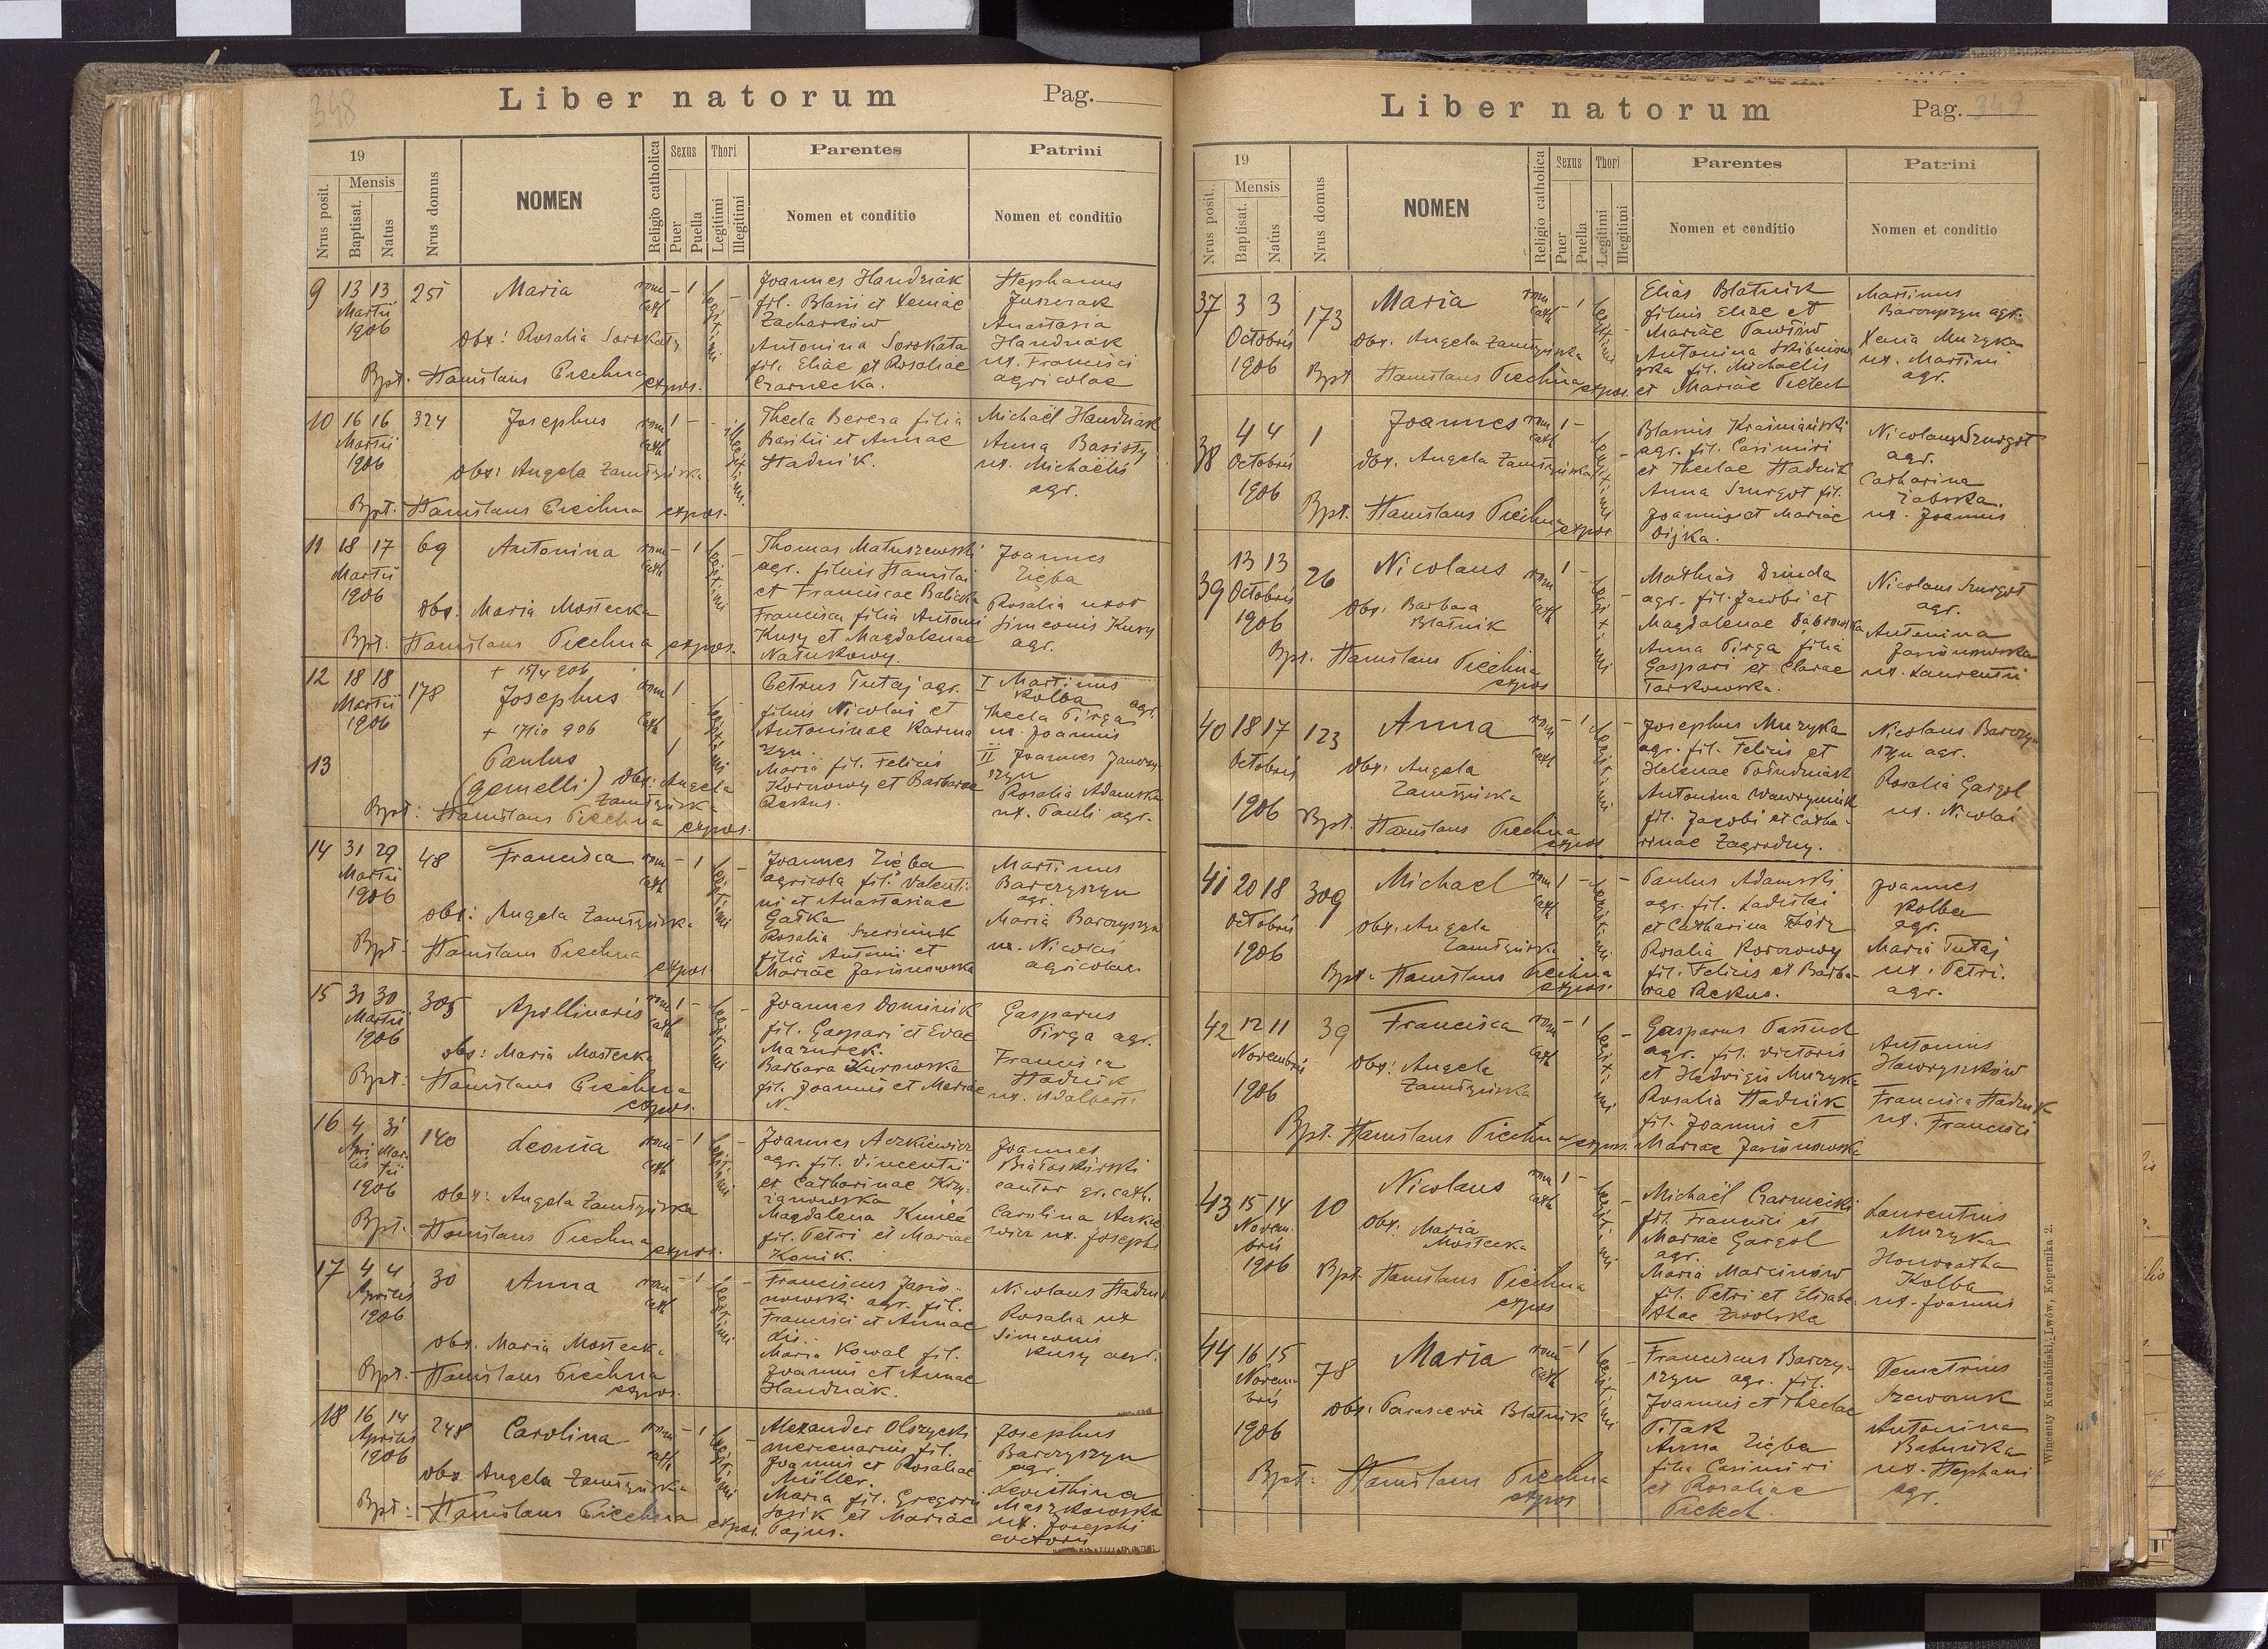 348
Liber natorum Pag.
19
Mensis
Nrus posit.
Baptisat.
Natus
Nrus domus
NOMEN
Religio catholica
Sexus
Puer
Puella
Thori
Legitimi
Illegitimi
Parentes
Nomen et conditio
Patrini
Nomen et conditio
9 13 13 251 Maria rom 1 legitimi
Martii cath
1906
Obx: Rosalia Sorokaty
Bpt. Stanislaus Piechna expos.
Joannes Handziak
fil. Blasii et Xeniae
Zacharkiw
Antonina Sorokata
fil. Eliae et Rosaliae
Czarnecka.
Stephanus
Anastasia
Handziak
ux. Francisci
agricolae
10 16 16 324 Josephus rom 1 illegitimi
Martii cath
1906
obx: Angela Zamłyńska
Bpt. Stanislaus Piechna expos.
Thecla Bereza filia
Basilii et Annae
Hadnik.
Michaël Handziak
Anna Basisty
ux. Michaëlis
agr.
11 18 17 69 Antonina rom 1 legitimi
Martii cath
1906
obx. Maria Mostecka
Bpt. Stanislaus Piechna expos.
Thomas Matuszewski
agr. filius Stanislai
et Franciscae Balicka
Francisca filia Antonii
Kusy et Magdalenae
Natukowy.
Joannes
Zięba
Rosalia uxor
Simeonis Kusy
agr.
12 18 18 178 + 15/4 906
Martii Josephus rom 1 legitimi
1906 + 17/10 906 cath
13 Paulus 1
(gemelli) obx: Angela
Zamłyńska
Bpt: Stanislaus Piechna expos.
Petrus Tutaj agr.
filius Nicolai et
Antoninae Karma
zyn.
Maria fil. Felicis
Kornowy et Barbarae
Rekus.
I Martinus
Kolba agr.
Thecla Pirga
ux. Joannis
II Joannes Janow
szyn
Rosalia Adamska
ux. Pauli agr.
14 31 29 48 Francisca rom 1 legitimi
Martii cath
1906
obx: Angela Zamłyńska
Bpt: Stanislaus Piechna expos.
Joannes Zięba
agricola fil. Valenti
ni et Anastasiae
Gałka
Rosalia
filia Antonii et
Mariae Jasionowska
Martinus
Barczyszyn
agr.
Maria Barczyszyn
ux. Nicolai
agricolae
15 31 30 305 Apollinaris rom 1 legitimi
Martii cath
1906
obx: Maria Mostecka
Bpt: Stanislaus Piechna
expos.
Joannes Dominik
fil. Gaspari et Evae
Mazurek.
Barbara Kurowska
fil. Joannis et Mariae
N.
Gasparus
Pirga agr.
Francisca
Hadnik
ux. Adalberti
16 4 31 140 Leonia rom 1 legitimi
Apri Mar cath
lis tii
1906
obx: Angela Zamłyńska
Bpt: Stanislaus Piechna expos.
Joannes Aczkiewicz
agr. fil. Vincentii
et Catharinae Krzy-
żanowska
Magdalena Kmieć
fil. Petri et Mariae
Konik.
Joannes
Białoskórski
cantor gr. cath.
Carolina Aczkie
wicz ux. Josephi
17 4 4 30 Anna rom 1 legitimi
Aprilis cath
1906
obx. Maria Mostecka
Bpt. Stanislaus Piechna
expos.
Franciscus Jasio-
nowski agr. fil.
Francisci et Annae
Lis.
Maria Kowal fil.
Joannis et Annae
Handziak.
Nicolaus Hadnik
Rosalia ux
Simeonis
Kusy agr.
18 16 14 248 Carolina rom 1 legitimi
Aprilis cath
1906
obx. Angela Zamłyńska
Bpt: Stanislaus Piechna expos.
Alexander Olszycki
mercenarius fil.
Joannis et Rosaliae
Müller.
Maria fil. Gregorii
Sosik et Mariae
Pajus.
Josephus
Barczyszyn
agr.
Leonthina
Maszkowska
ux. Josephi
349
Liber natorum Pag.
19
Mensis
Nrus posit.
Baptisat.
Natus
Nrus domus
NOMEN
Religio catholica
Sexus
Puer
Puella
Thori
Legitimi
Illegitimi
Parentes
Nomen et conditio
Patrini
Nomen et conditio
37 3 3 173 Maria rom 1 legitimi
Octobris cath
1906
obx. Angela Zamłyńska
Bpt Stanislaus Piechna expos.
Elias Blatnik
filius Eliae et
Mariae Pawłów
Antonina Skibniew
ska fil. Michaelis
et Mariae Pielech
Martinus
Barczyszyn agr.
Xenia Muzyka
ux. Martini
agr.
38 4 4 1 Joannes rom 1 legitimi
Octobris cath
1906
Obx. Angela Zamłyńska
Bpt. Stanislaus Piechna expos
Blasius Krasmański
agr. fil. Casimiri
et Theclae Hadnik
Anna Szurgot fil.
Joannis et Mariae
Dijka.
Nicolaus Szurgot
agr.
Catharina
Zabska
ux. Joannis
39 13 13 26 Nicolaus rom 1 legitimi
Octobris cath
1906
Obx: Barbara
Blatnik
Bpt. Stanislaus Piechna
expos
Mathias Dziuda
agr. fil. Jacobi et
Magdalenae Dąbrowska
Anna Pirga filia
Gaspari et Clarae
Tarkowska.
Nicolaus Szurgot
agr.
Antonina
Jasionowska
ux. Laurentii
40 18 17 123 Anna rom 1 legitimi
Octobris cath
1906
Obx: Angela
Zamłyńska
Bpt. Stanislaus Piechna
expos
Josephus Muzyka
agr. fil. Felicis et
Helenae Południak
Antonina Wawrzyniuk
fil. Jacobi et Catha-
rinae Zagrodny.
Nicolaus Barczy
szyn agr.
Rosalia Gargol
ux. Nicolai
41 20 18 309 Michael rom 1 legitimi
Octobris cath
1906
obx. Angela
Zamłyńska
Bpt. Stanislaus Piechna
expos.
Paulus Adamski
agr. fil. Ladislai
et Catharina Tkórz
Rosalia Kornowy
fil. Felicis et Barba-
rae Rekus.
Joannes
Kolba
agr.
Maria Tutaj
ux. Petri.
agr.
42 12 11 39 Francisca rom 1 legitimi
Novembris cath
1906
Obx: Angela
Zamłyńska
Bpt. Stanislaus Piechna expos.
Gasparus Pastuch
agr. fil. Victoris
et Hedvigis Muzyka
Rosalia Hadnik
fil. Joannis et
Mariae Jasionowska
Antonius
Hawryszków
Francisca Hadnik
ux. Francisci
43 15 14 10 Nicolaus rom 1 legitimi
Novem- cath
bris
1906
Obx. Maria
Mostecka
Bpt. Stanislaus Piechna
expos
Michaël Czarnecki
fil. Francisci et
Mariae Gargol
agr.
Maria Marcinów
fil. Petri et Elisabe-
thae Zwolska
Laurentius
Muzyka
Honoratha
Kolba
ux. Joannis
44 16 15 78 Maria rom 1 legitimi
Novem cath
bris
1906
obx: Parascevia Blatnik
Bpt: Stanislaus Piechna
expos
Franciscus Barczy-
szyn agr. fil.
Joannis et Theclae
Pitak
Anna Zięba
filia Casimiri
et Rosaliae
Pielech.
Demetrius
Szewczuk
Antonina
Babuńka
ux. Stephani
agr.
Wincenty Kuczabiński, Lwów, Kopernika 2.